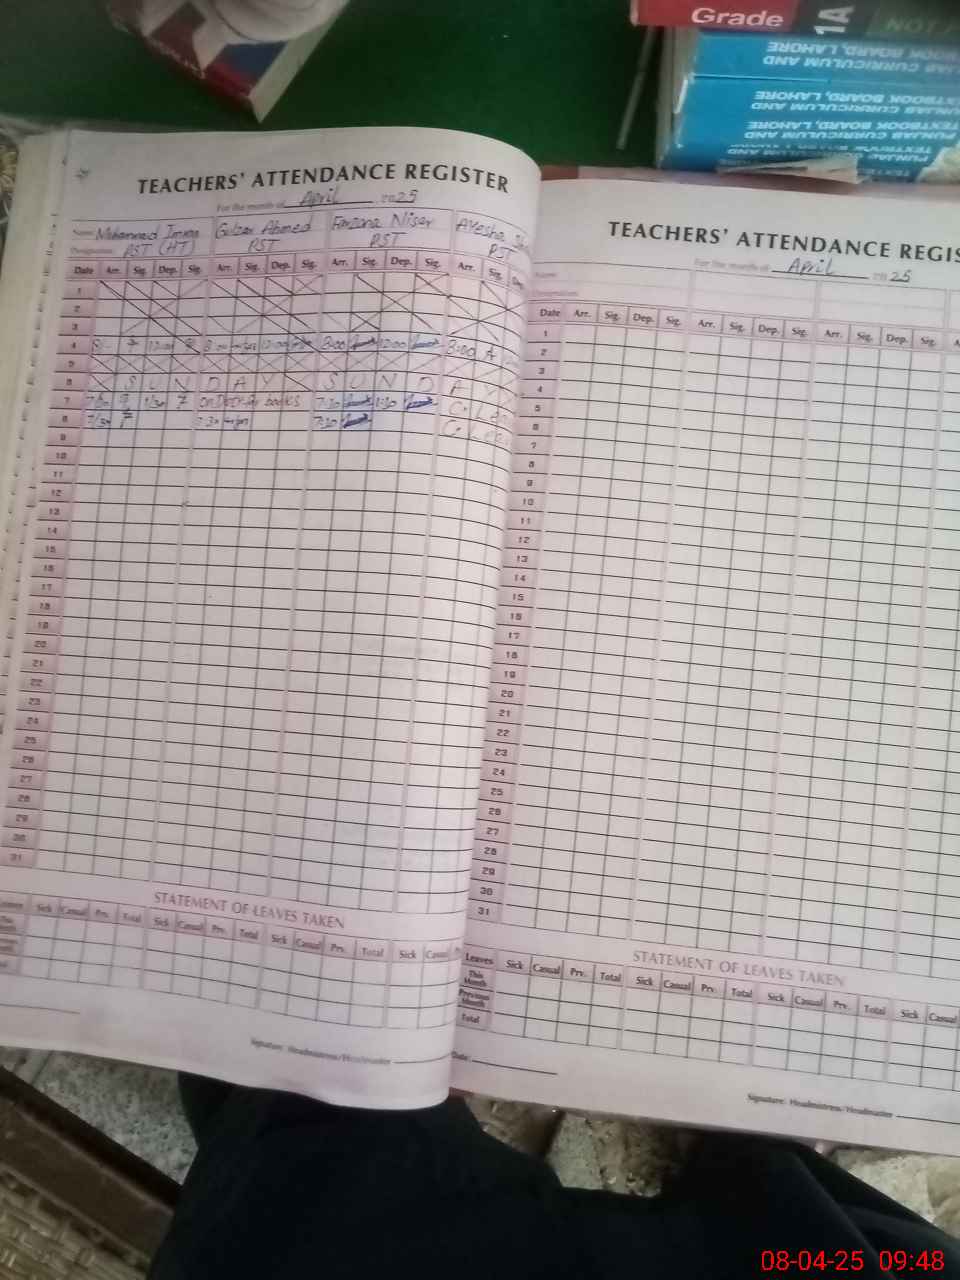 Grade
1A
PUNJAB CURRICULUM AND
TEXTBOOK BOARD, LAHORE
PUNJAB CURRICULUM AND
TEXTBOOK BOARD, LAHORE
TEACHERS' ATTENDANCE REGISTER
For the month of April 2025
Name Muhammad Imran Gulzar Ahmed Farzana Nisar Ayesha
Designation PST (HT) PST PST PST
Date Arr. Sig. Dep. Sig. Arr. Sig. Dep. Sig. Arr. Sig. Dep. Sig. Arr. Sig. Dep.
1
2
3
4 8:00 12:00 8:00 12:00 8:00 12:00 8:00
5
6 SUNDAY SUNDAY
7 7/30 1/30 on Duty for books 7:30 1:30 C. Leave
8 7/30 7:30 7:30 C. Leave
9
10
11
12
13
14
15
16
17
18
19
20
21
22
23
24
25
26
27
28
29
30
31
STATEMENT OF LEAVES TAKEN
Leaves Sick Casual Prv. Total Sick Casual Prv. Total Sick Casual Prv. Total Sick Casual
This Month
Signature: Headmistress/Headmaster
TEACHERS' ATTENDANCE REGIS
For the month of April 2025
Name
Designation
Date Arr. Sig. Dep. Sig. Arr. Sig. Dep. Sig. Arr. Sig. Dep. Sig. A
1
2
3
4
5
6
7
8
9
10
11
12
13
14
15
16
17
18
19
20
21
22
23
24
25
26
27
28
29
30
31
STATEMENT OF LEAVES TAKEN
Leaves Sick Casual Prv. Total Sick Casual Prv. Total Sick Casual Prv. Total Sick Casual
This Month
Previous Month
Total
Date:
Signature: Headmistress/Headmaster
08-04-25 09:48